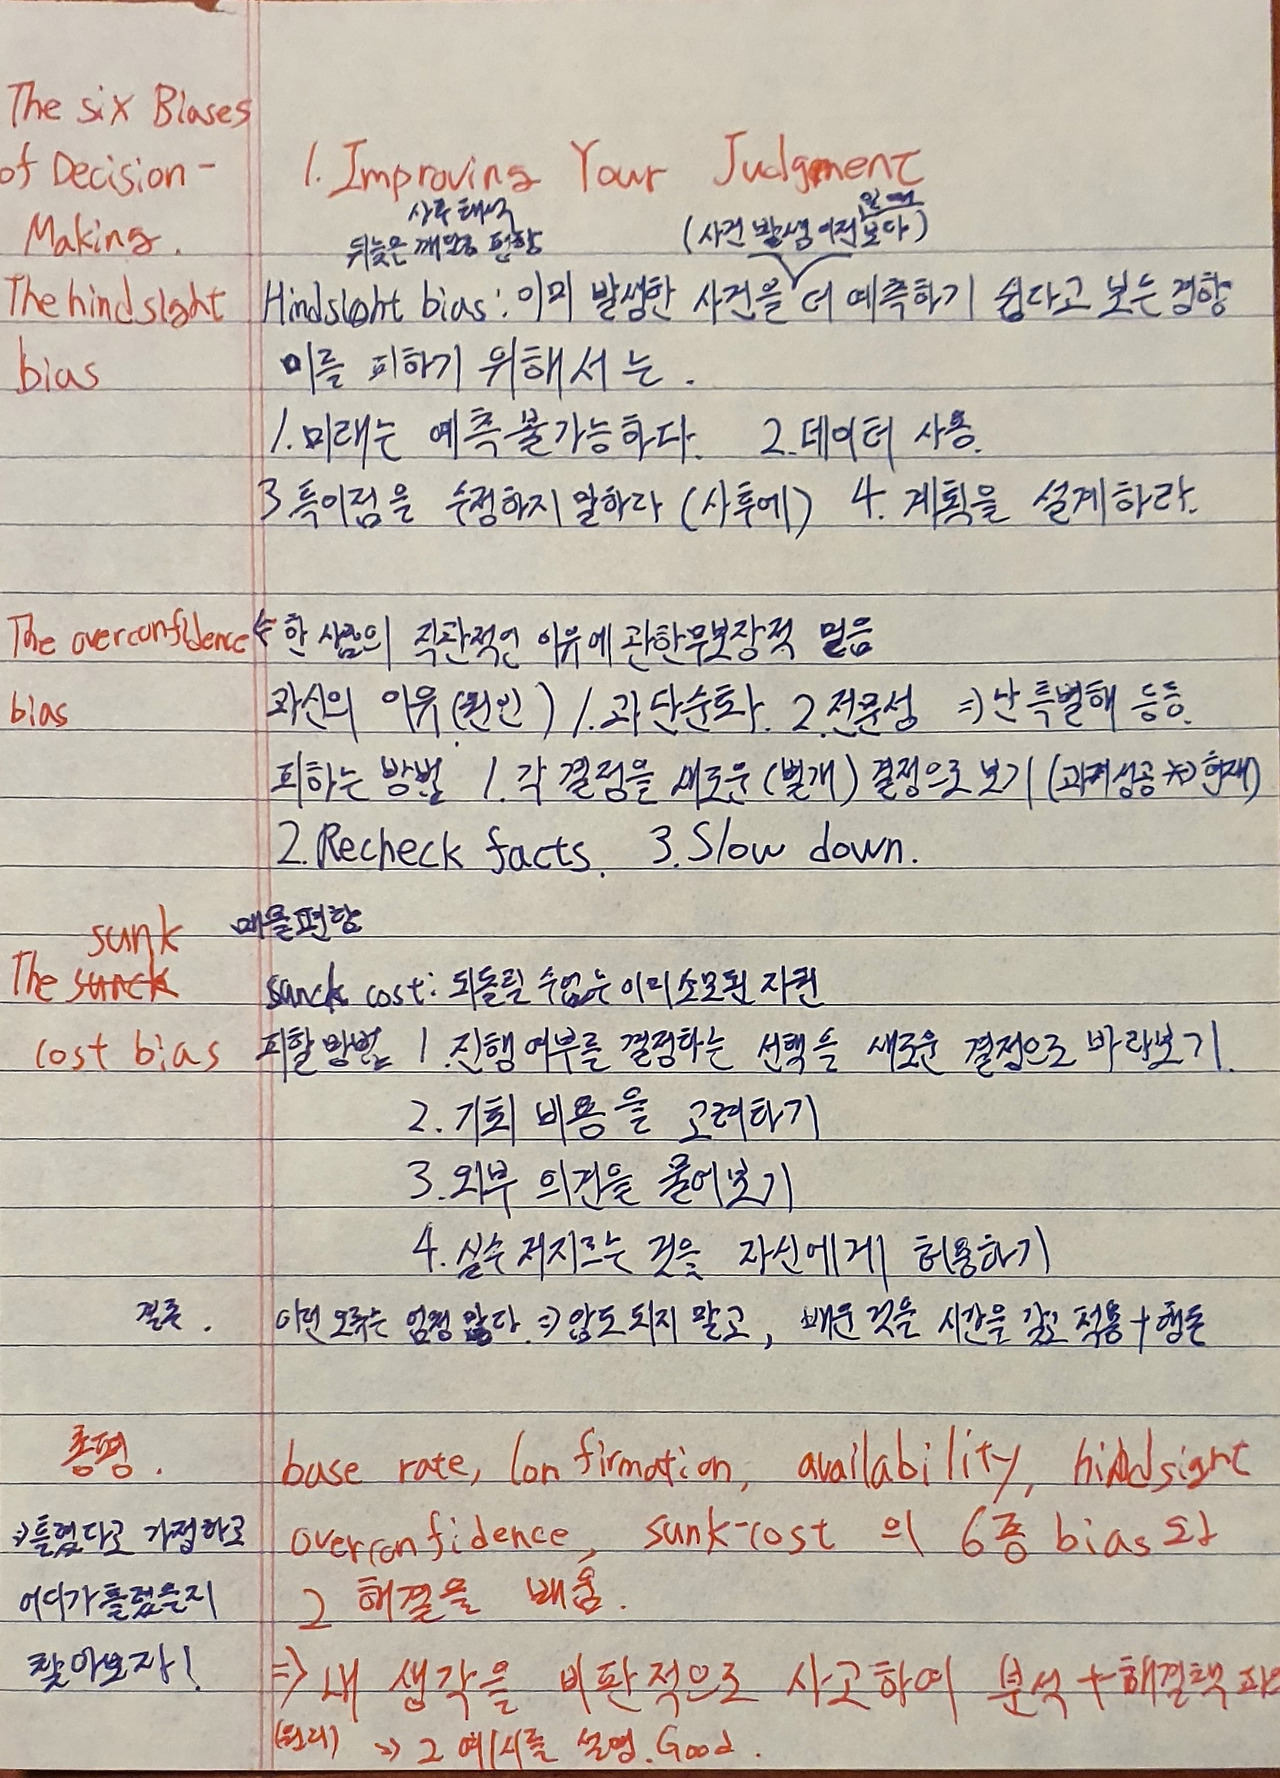 The six Biases
of Decision-
Making.
1. Improving Your Judgment
사후 해석
뒤늦은 깨달음 편향
(사건 발생 이전보다)
The hindsight
bias
Hindsight bias: 이미 발생한 사건을 더 예측하기 쉽다고 보는 경향
이를 피하기 위해서는.
1. 미래는 예측 불가능하다. 2. 데이터 사용.
3 특이점을 수정하지 말하라 (사후에) 4. 계획을 설계하라.
The overconfidence
bias
⇐ 한 사람의 직관적인 이유에 관한 무보장적 믿음
과신의 이유(원인) 1. 과단순화. 2. 전문성 ⇒ 난 특별해 등등.
피하는 방법 1. 각 결정을 새로운(별개) 결정으로 보기 (과거성공 ⇏ 현재)
2. Recheck facts. 3. Slow down.
매몰편향
sunk
The sunck
cost bias
sunck cost: 되돌릴 수 없는 이미 소모된 자원
피할 방법 1. 진행 여부를 결정하는 선택을 새로운 결정으로 바라보기.
2. 기회 비용을 고려하기
3. 외부 의견을 물어보기
4. 실수 저지르는 것을 자신에게 허용하기
결론.
이런 오류는 엄청 많다. ⇒ 압도 되지 말고, 배운 것을 시간을 갖고 적용 + 행동
총평.
base rate, Confirmation, availability, hindsight
overconfidence, sunk-cost 의 6종 bias와
그 해결을 배움.
⇒ 틀렸다고 가정하고
어디가 틀렸을지
찾아보자!
⇒ 내 생각을 비판적으로 사고하여 분석 + 해결책
(원리) ⇒ 그 예시를 설명. Good.